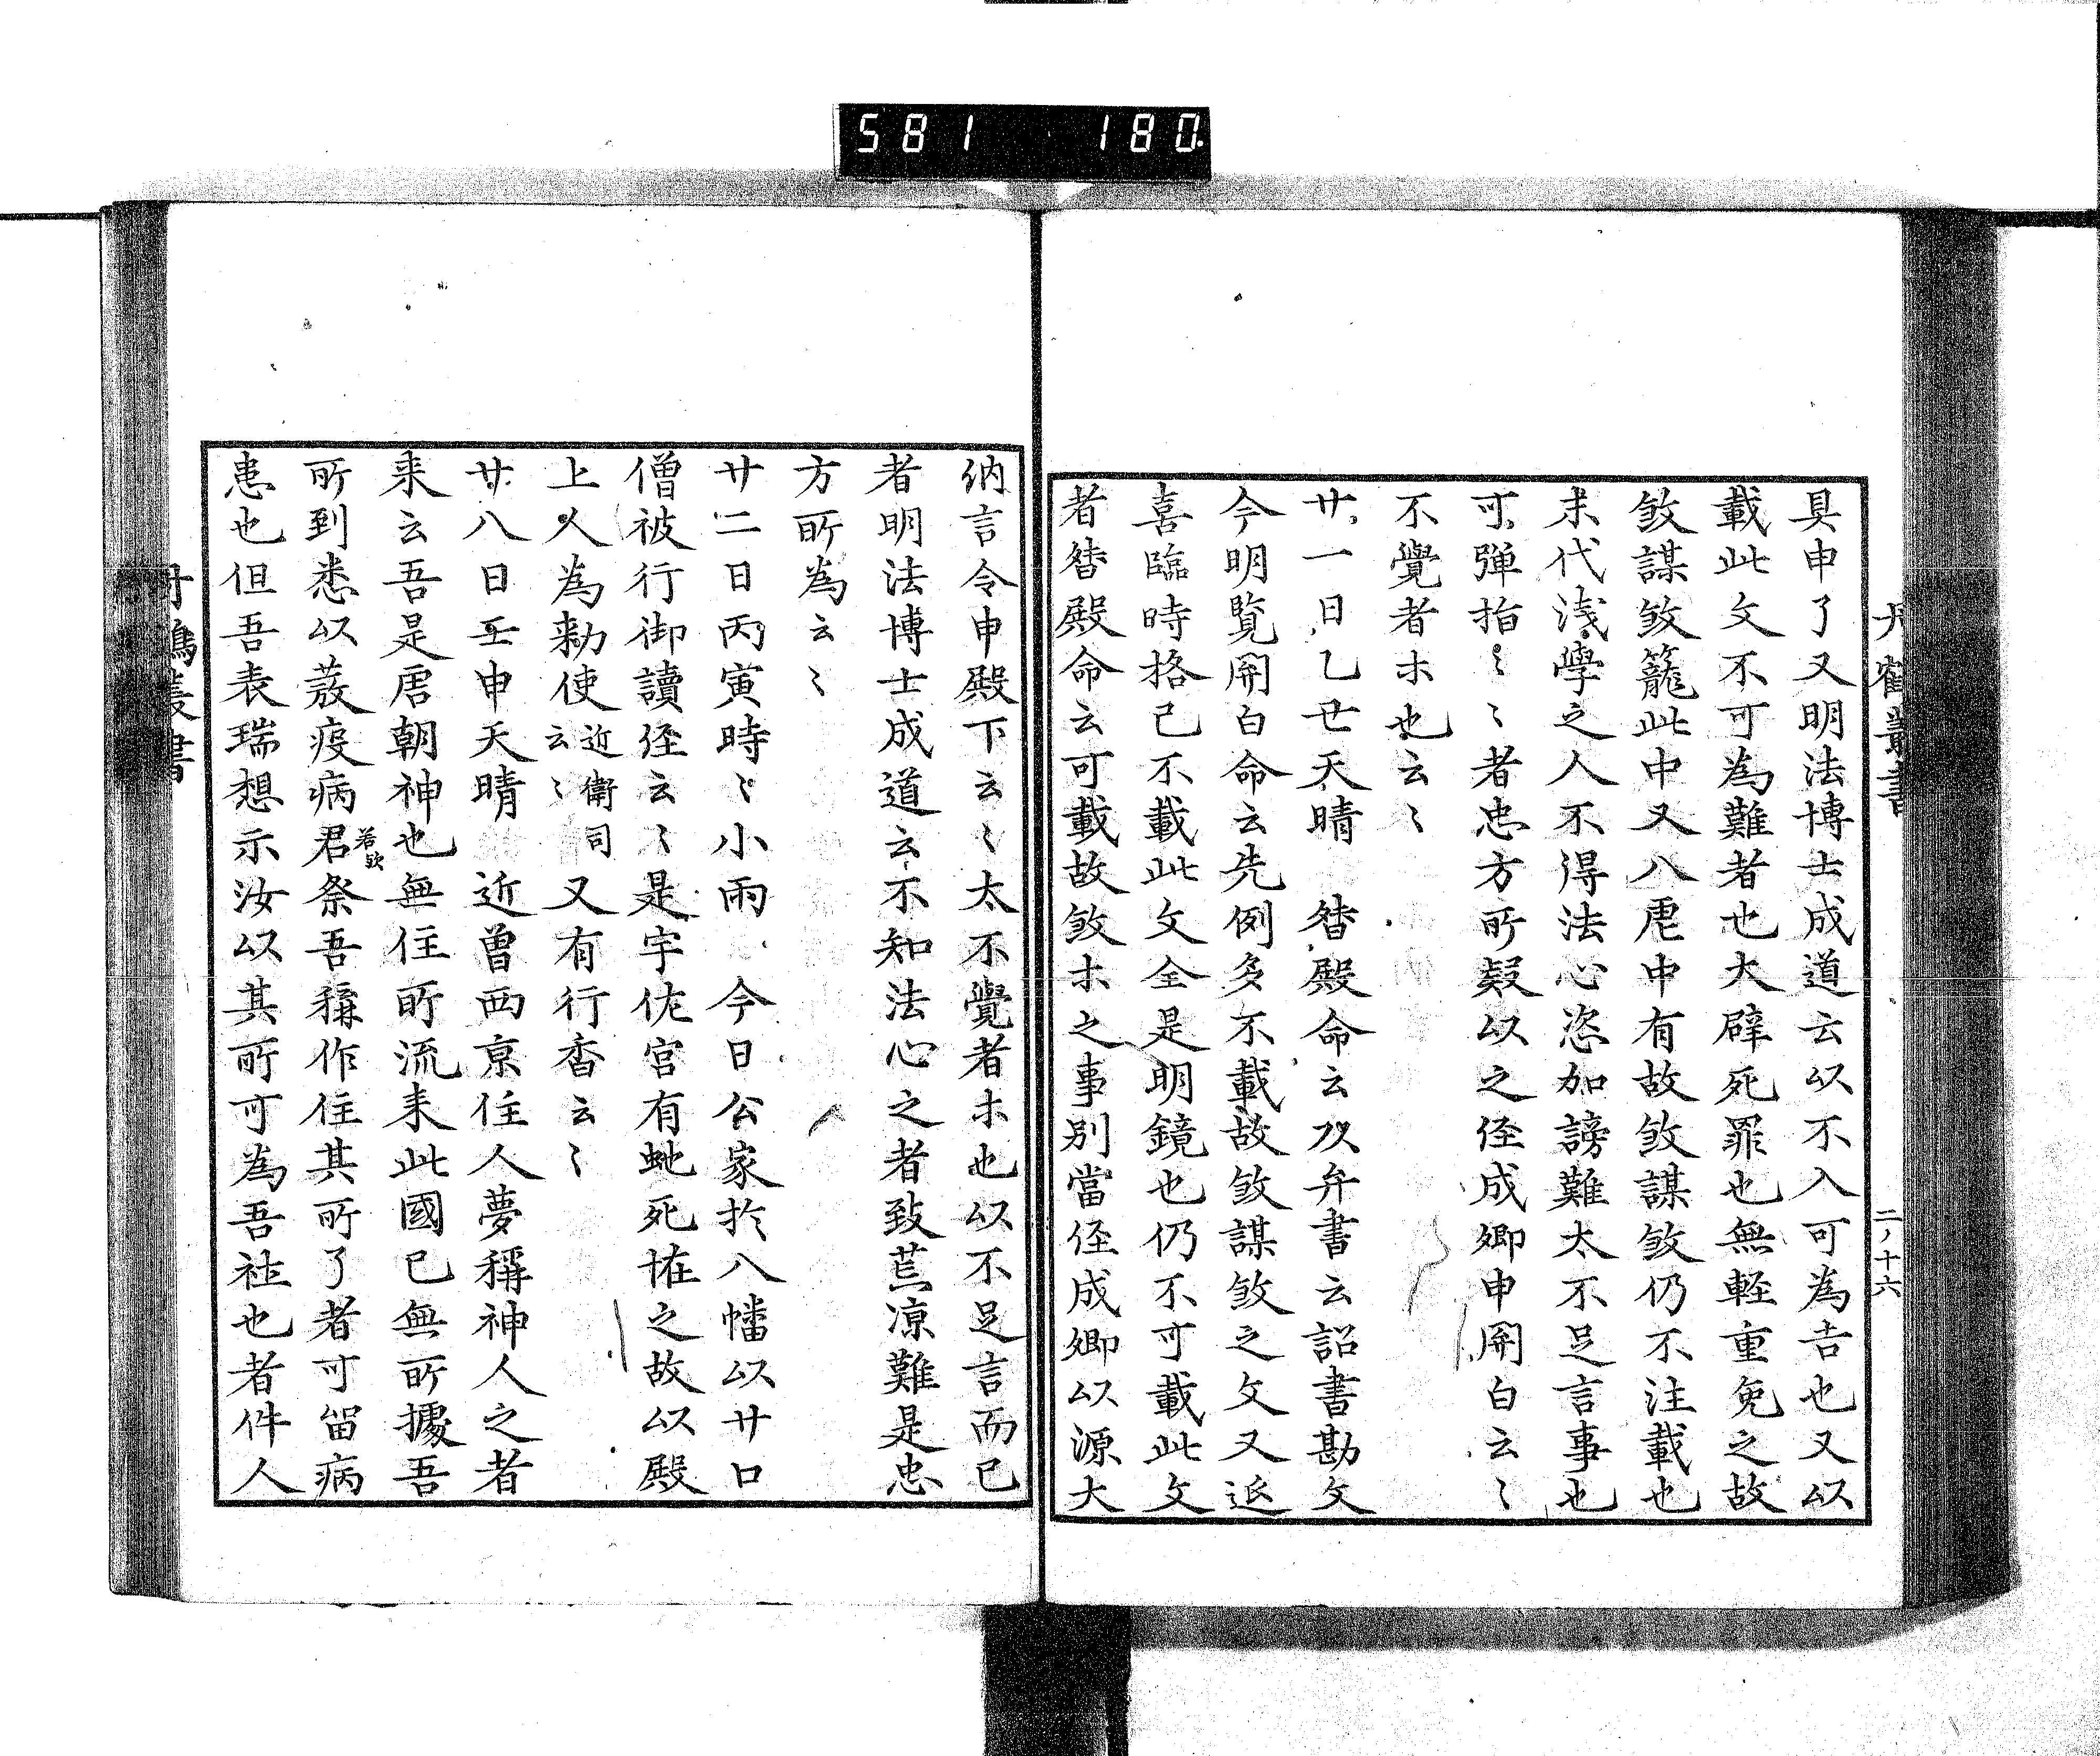 581 180
丹鶴叢書
二ノ十六
具申了又明法博士成道云以不入可為吉也又以
載此文不可為難者也大辟死罪也無軽重免之故
敘謀敘籠此中又八虐中有故敘謀敘仍不注載也
末代浅學之人不得法心恣加謗難太不足言事也
可弾指〻〻者忠方所疑以之侄成卿申関白云〻
不覺者ホ也云〻
廿一日乙丑天晴 督殿命云次弁書云詔書勘文
今明覧関白命云先例多不載故敘謀敘之文又延
喜臨時格已不載此文全是明鏡也仍不可載此文
者督殿命云可載故敘ホ之事別當侄成卿以源大
納言令申殿下云〻太不覺者ホ也以不足言而已
者明法博士成道云不知法心之者致荒凉難是忠
方所為云〻
廿二日丙寅時〻小雨 今日公家於八幡以廿口
僧被行御讀経云〻是宇佐宮有虵死恠之故以殿
上人為勅使近衛司云〻又有行香云〻
廿八日壬申天晴 近曽西京住人夢稱神人之者
来云吾是唐朝神也無住所流来此國已無所據吾
所到悉以蔆疫病君若欤祭吾稱作住其所了者可留病
患也但吾表瑞想示汝以其所可為吾社也者件人
丹鶴叢書